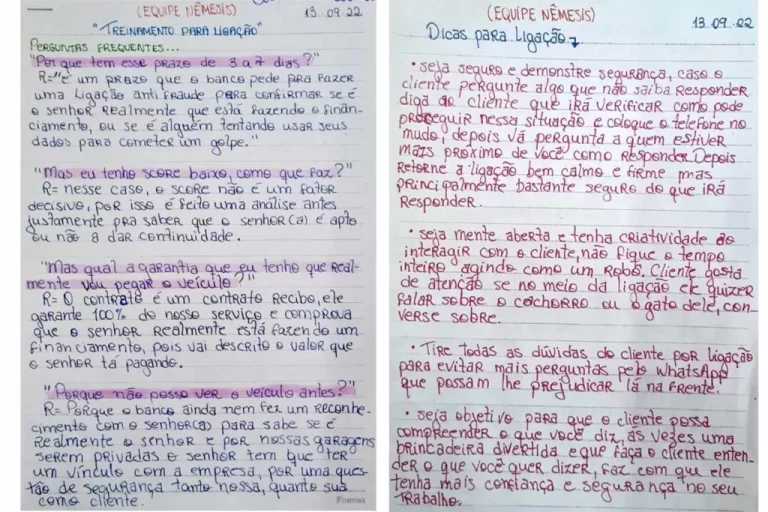 (EQUIPE NÊMESIS) 13.09.22
"TREINAMENTO PARA LIGAÇÃO"
PERGUNTAS FREQUENTES...
"Por que tem esse prazo de 3 a 7 dias?"
R="é um prazo que o banco pede pra fazer
uma ligação anti fraude para confirmar se é
o senhor realmente que está fazendo o finan-
ciamento, ou se é alguém tentando usar seus
dados para cometer um golpe."
"Mas eu tenho score baixo, como que faz?"
R= nesse caso, o score não é um fator
decisivo, por isso é feito uma análise antes
justamente pra saber que o senhor(a) é apto
ou não a dar continuidade.
"Mas qual a garantia que eu tenho que real-
mente vou pegar o veículo?"
R= O contrato é um contrato recibo, ele
garante 100% do nosso serviço e comprova
que o senhor realmente está fazendo um
financiamento, pois vai descrito o valor que
o senhor tá pagando.
"Porque não posso ver o veículo antes?"
R= Porque o banco ainda nem fez um reconhe-
cimento com o senhor(a) para sabe se é
realmente o senhor e por nossas garagens
serem privadas o senhor tem que ter
um vínculo com a empresa, por uma ques-
tão de segurança tanto nossa, quanto sua
como cliente.
(EQUIPE NÊMESIS) 13.09.22
Dicas para Ligação
• seja seguro e demonstre segurança, caso o
cliente pergunte algo que não saiba responder
diga ao cliente que irá verificar como pode
proseguir nessa situação e coloque o telefone no
mudo, depois vá pergunta a quem estiver
mais proximo de você como responder. Depois
retorne a ligação bem calmo e firme mas
principalmente bastante seguro do que irá
responder.
• seja mente aberta e tenha criatividade ao
interagir com o cliente, não fique o tempo
inteiro agindo como um robô. Cliente gosta
de atenção se no meio da ligação ele quizer
falar sobre o cachorro ou o gato dele, con-
verse sobre.
• Tire todas as dúvidas do cliente por ligação
para evitar mais perguntas pelo WhatsApp
que possam lhe prejudicar lá na frente.
• seja objetivo para que o cliente possa
compreender o que você diz, as vezes uma
brincadeira divertida e que faça o cliente enten-
der o que você quer dizer, faz com que ele
tenha mais confiança e segurança no seu
trabalho.